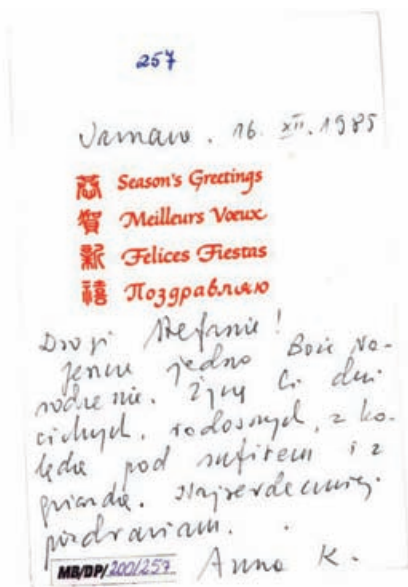 257
Jarnaw. 16. XII. 1985
恭 Season's Greetings
賀 Meilleurs Voeux
新 Felices Fiestas
禧 Поздравляю
Drogi Stefanie!
Jeszcze jedno Boże Na-
rodzenie. Życzę Ci dni
cichych, radosnych, z ko-
lędą pod sufitem i z
gwiazdą. Najserdeczniej
pozdrawiam.
MB/DP/200/257
Anna K.